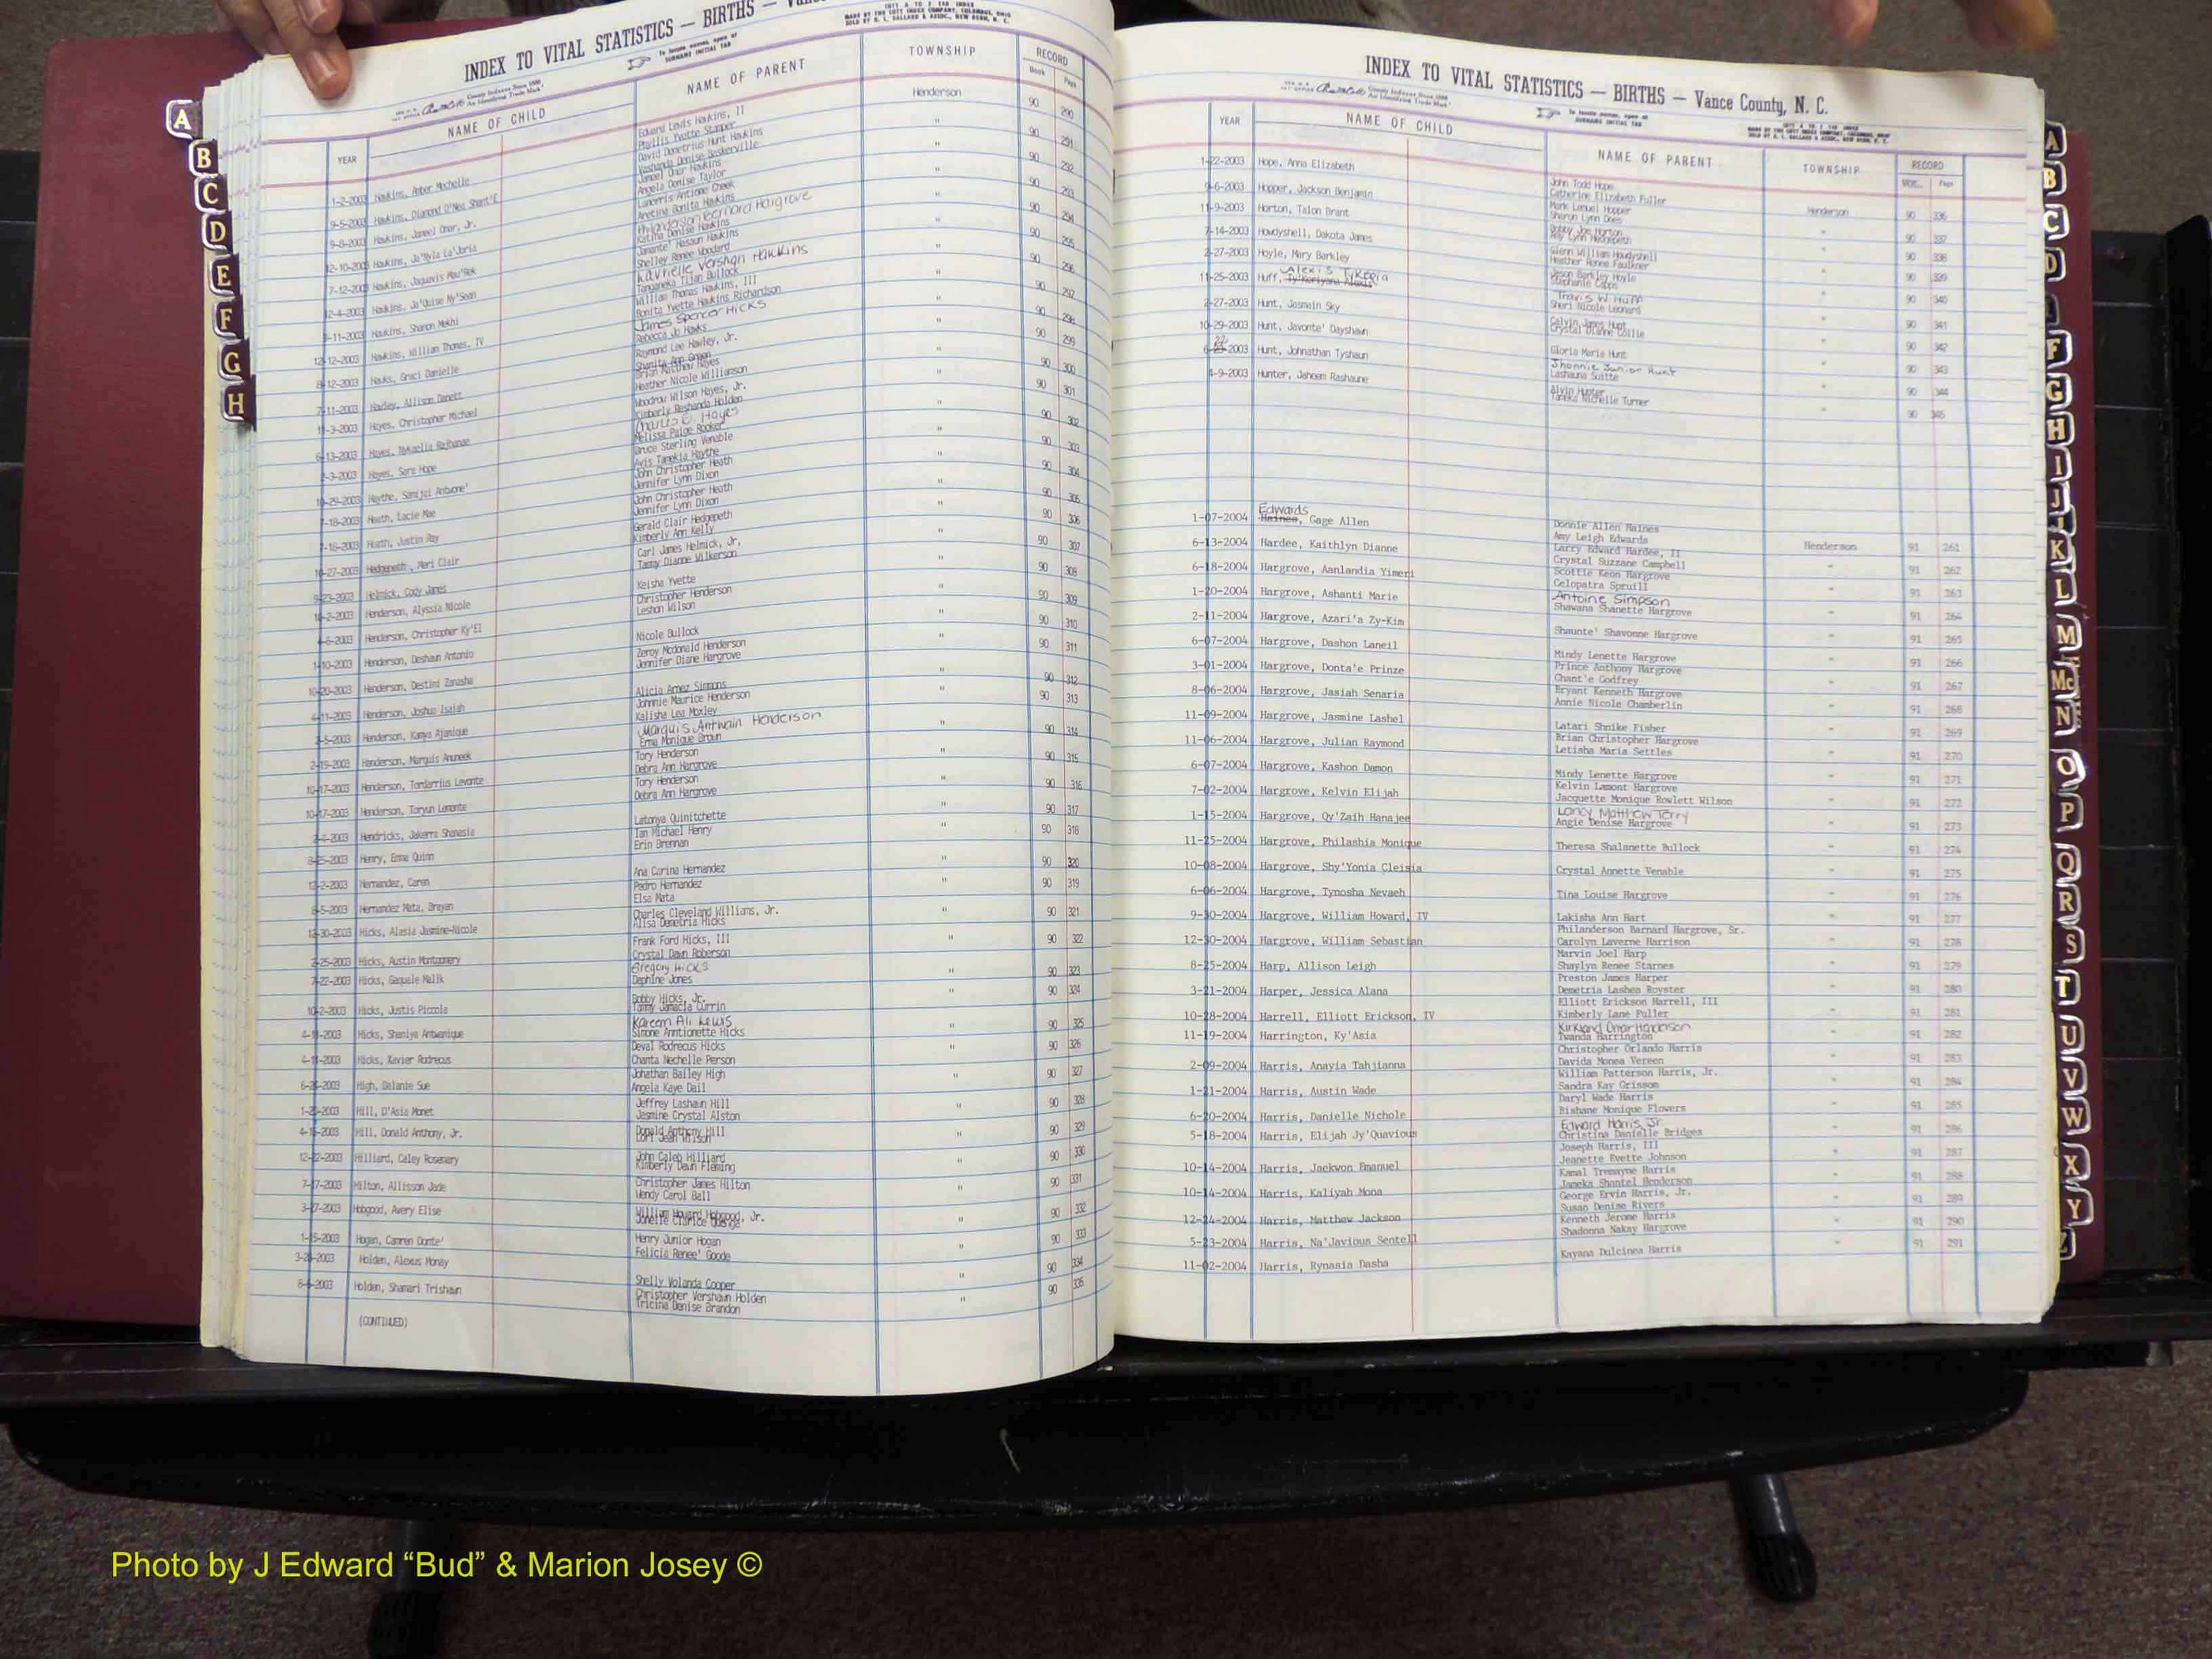 INDEX TO VITAL STATISTICS — BIRTHS —
NAME OF CHILD
NAME OF PARENT
TOWNSHIP
RECORD
Book
Page
YEAR
Henderson
1-2-2003 Hawkins, Amber Mechelle Edward Lewis Hawkins, II 90 290
Phyllis Yvette Stamper
9-5-2003 Hawkins, Diamond O'Nea Shant'E David Demetrius Hunt Hawkins " 90 291
Denise Baskerville
9-8-2003 Hawkins, Jameel Omar, Jr. Jameel Omar Hawkins " 90 292
Angela Denise Taylor
12-10-2003 Hawkins, Ja'Nyla La'Joria Antione Cheek " 90 293
Bonita Hawkins
7-12-2003 Hawkins, Jaquavis " 90 294
Katina Denise Hawkins
12-4-2003 Hawkins, Ja'Quise Ny'Sean Hasaun Hawkins " 90 295
Shelley Renee Woodard
Hawkins, Sharon Mekhi Vershan Hawkins " 90 296
Bullock
12-12-2003 Hawkins, William Thomas, IV William Thomas Hawkins, III " 90 297
Bonita Yvette Hawkins Richardson
8-12-2003 Hawks, Graci Danielle James Spencer Hicks " 90 298
Rebecca Jo Hawks
7-11-2003 Hawley, Allison Raymond Lee Hawley, Jr. " 90 299
Shanita Ann Green
11-3-2003 Hayes, Christopher Michael Brian Matthew Hayes " 90 300
Heather Nicole Williamson
6-13-2003 Hayes, Woodrow Wilson Hayes, Jr. " 90 301
Kimberly Reshanda Holden
Hayes, Sara Hope Charles C. Hayes " 90 302
Melissa Paige Rooker
10-29-2003 Haythe, Samijai Antwone' Bruce Sterling Venable " 90 303
Avis Tanekia Haythe
7-18-2003 Heath, Lacie Mae John Christopher Heath " 90 304
Jennifer Lynn Dixon
7-18-2003 Heath, Justin Ray John Christopher Heath " 90 305
Jennifer Lynn Dixon
10-27-2003 Hedgepeth, Meri Clair Gerald Clair Hedgepeth " 90 306
Kimberly Ann Kelly
9-23-2003 Helmick, Cody James Carl James Helmick, Jr. " 90 307
Tammy Dianne Wilkerson
Henderson, Alyssia Nicole Keisha Yvette " 90 308
4-6-2003 Henderson, Christopher Ky'El Christopher Henderson " 90 309
Leshon Wilson
1-10-2003 Henderson, Deshaun Antonio Nicole Bullock " 90 310
10-20-2003 Henderson, Destini Zanasha Zeroy Mcdonald Henderson " 90 311
Jennifer Diane Hargrove
4-11-2003 Henderson, Joshua Isaiah Alicia Amez Simmons " 90 312
Henderson, Kamya Ajanique Johnnie Maurice Henderson " 90 313
Kalisha Lea Moxley
2-15-2003 Henderson, Marquis Anuneek Marquis Antwain Henderson " 90 314
Erma Monique Brown
10-17-2003 Henderson, Tordarrius Levonte Tory Henderson " 90 315
Debra Ann Hargrove
10-17-2003 Henderson, Toryun Lemonte Tory Henderson " 90 316
Debra Ann Hargrove
2-4-2003 Hendricks, Jakerra Shanesia Latonya Quinitchette " 90 317
8-25-2003 Henry, Emma Quinn Ian Michael Henry " 90 318
Erin Brennan
12-2-2003 Hernandez, Caren Ana Carina Hernandez " 90 320
8-5-2003 Hernandez Mata, Brayan Pedro Hernandez " 90 319
Elsa Mata
12-30-2003 Hicks, Alasia Jasmine-Nicole Charles Cleveland Williams, Jr. " 90 321
Alisa Demetria Hicks
2-25-2003 Hicks, Austin Montgomery Frank Ford Hicks, III " 90 322
Crystal Dawn Roberson
7-22-2003 Hicks, Gequale Malik Gregory Hicks " 90 323
Daphine Jones
10-2-2003 Hicks, Justis Piccola Bobby Hicks, Jr. " 90 324
Tammy Janacia Currin
Hicks, Shaniya Antwanique Kareem Ali Lewis " 90 325
Simone Anntionette Hicks
Hicks, Xavier Rodrecus Deval Rodrecus Hicks " 90 326
Chanta Nechelle Person
High, Dalanie Sue Johathan Bailey High " 90 327
Angela Kaye Dail
Hill, D'Asia Monet Jeffrey Lashawn Hill " 90 328
Jasmine Crystal Alston
Hill, Donald Anthony, Jr. Donald Anthony Hill " 90 329
Lori Jean Wilson
12-22-2003 Hilliard, Caley Rosemary John Caleb Hilliard " 90 330
Kimberly Dawn Fleming
7-17-2003 Hilton, Allisson Jade Christopher James Hilton " 90 331
Wendy Carol Ball
3-27-2003 Hobgood, Avery Elise William Howard Hobgood, Jr. " 90 332
Hogan, Camren Donte' Henry Junior Hogan " 90 333
Felicia Renee' Goode
Holden, Alexus Monay Shelly Volanda Cooper " 90 334
Holden, Shamari Trishawn Christopher Vershawn Holden " 90 335
Tricina Denise Brandon
(CONTINUED)
INDEX TO VITAL STATISTICS — BIRTHS — Vance County, N. C.
YEAR
NAME OF CHILD
NAME OF PARENT
TOWNSHIP
RECORD
Page
1-22-2003 Hope, Anna Elizabeth John Todd Hope Henderson 90 336
Catherine Elizabeth Fuller
9-6-2003 Hopper, Jackson Benjamin Mark Lemuel Hopper " 90 337
Sharon Lynn Dees
11-9-2003 Horton, Talon Brant Bobby Joe Horton " 90 338
Amy Lynn Hedgepeth
7-14-2003 Howdyshell, Dakota James Glenn William Howdyshell " 90 339
Heather Renee Faulkner
2-27-2003 Hoyle, Mary Barkley Jason Barkley Hoyle " 90 340
Stephanie Capps
11-25-2003 Huff, Alexis Tykeria Travis W Huff " 90 341
Sheri Nicole Leonard
2-27-2003 Hunt, Jasmain Sky Calvin James Hunt " 90 342
Crystal Dianne Collie
10-29-2003 Hunt, Javonte' Dayshawn Gloria Maria Hunt " 90 343
22
Hunt, Johnathan Tyshaun Jhonnie Junior Hunt " 90 344
Lashauna Suitte
4-9-2003 Hunter, Jaheem Rashaune Alvin Hunter " 90 345
Taneka Michelle Turner
Edwards
1-07-2004 Haines, Gage Allen Donnie Allen Haines Henderson 91 261
Amy Leigh Edwards
6-13-2004 Hardee, Kaithlyn Dianne Larry Edward Hardee, II " 91 262
Crystal Suzzane Campbell
6-18-2004 Hargrove, Aanlandia Yimeri Scottie Keon Hargrove " 91 263
Celopatra Spruill
1-20-2004 Hargrove, Ashanti Marie Antoine Simpson " 91 264
Shawana Shanette Hargrove
2-11-2004 Hargrove, Azari'a Zy-Kim Shaunte' Shavonne Hargrove " 91 265
6-07-2004 Hargrove, Dashon Laneil Mindy Lenette Hargrove " 91 266
3-01-2004 Hargrove, Donta'e Prinze Prince Anthony Hargrove " 91 267
Chant'e Godfrey
8-06-2004 Hargrove, Jasiah Senaria Bryant Kenneth Hargrove " 91 268
Annie Nicole Chamberlin
11-09-2004 Hargrove, Jasmine Lashel Latari Shnike Fisher " 91 269
11-06-2004 Hargrove, Julian Raymond Brian Christopher Hargrove " 91 270
Letisha Maria Settles
6-07-2004 Hargrove, Kashon Damon Mindy Lenette Hargrove " 91 271
7-02-2004 Hargrove, Kelvin Elijah Kelvin Lamont Hargrove " 91 272
Jacquette Monique Rowlett Wilson
1-15-2004 Hargrove, Qy'Zaih Hanajee Lancy Matthew Terry " 91 273
Angie Denise Hargrove
11-25-2004 Hargrove, Philashia Monique Theresa Shalanette Bullock " 91 274
10-08-2004 Hargrove, Shy'Yonia Cleisia Crystal Annette Venable " 91 275
6-06-2004 Hargrove, Tynosha Nevaeh Tina Louise Hargrove " 91 276
9-30-2004 Hargrove, William Howard, IV Lakisha Ann Hart " 91 277
12-30-2004 Hargrove, William Sebastian Philanderson Barnard Hargrove, Sr. " 91 278
Carolyn Laverne Harrison
8-25-2004 Harp, Allison Leigh Marvin Joel Harp " 91 279
Shaylyn Renee Starnes
3-21-2004 Harper, Jessica Alana Preston James Harper " 91 280
Demetria Lashea Royster
10-28-2004 Harrell, Elliott Erickson, IV Elliott Erickson Harrell, III " 91 281
Kimberly Lane Puller
11-19-2004 Harrington, Ky'Asia Kirkland Omar Henderson " 91 282
Twanda Harrington
2-09-2004 Harris, Anayia Tahjianna Christopher Orlando Harris " 91 283
Davida Monea Vereen
1-21-2004 Harris, Austin Wade William Patterson Harris, Jr. " 91 284
Sandra Kay Grissom
6-20-2004 Harris, Danielle Nichole Daryl Wade Harris " 91 285
Bishane Monique Flowers
5-18-2004 Harris, Elijah Jy'Quavious Edward Harris, Jr. " 91 286
Christina Danielle Bridges
10-14-2004 Harris, Jackwon Emanuel Joseph Harris, III " 91 287
Jeanette Evette Johnson
10-14-2004 Harris, Kaliyah Mona Kamal Tremayne Harris " 91 288
Janeka Shantel Henderson
12-24-2004 Harris, Matthew Jackson George Ervin Harris, Jr. " 91 289
Susan Denise Rivers
5-23-2004 Harris, Na'Javious Sentell Kenneth Jerome Harris " 91 290
Shadonna Nakay Hargrove
11-02-2004 Harris, Rynasia Dasha Kayana Dulcinea Harris " 91 291
A
B
C
D
E
F
G
H
A
B
C
D
F
G
H
I
J
K
L
M
Mc
N
O
P
Q
R
S
T
U
V
W
X
Y
Z
Photo by J Edward “Bud” & Marion Josey ©